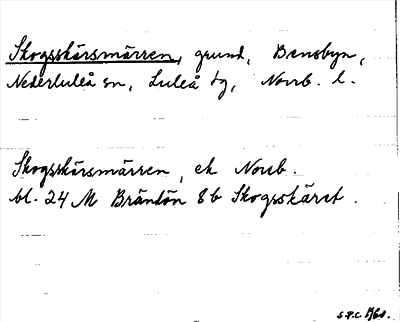 Skogsskärsmärren, grund, Bensbyn,
Nederluleå sn, Luleå tg, Norrb. l.
Skogsskärsmärren, ek Norrb.
bl. 24 M Brändön 8b Skogsskäret.
S.P.C. 1960.